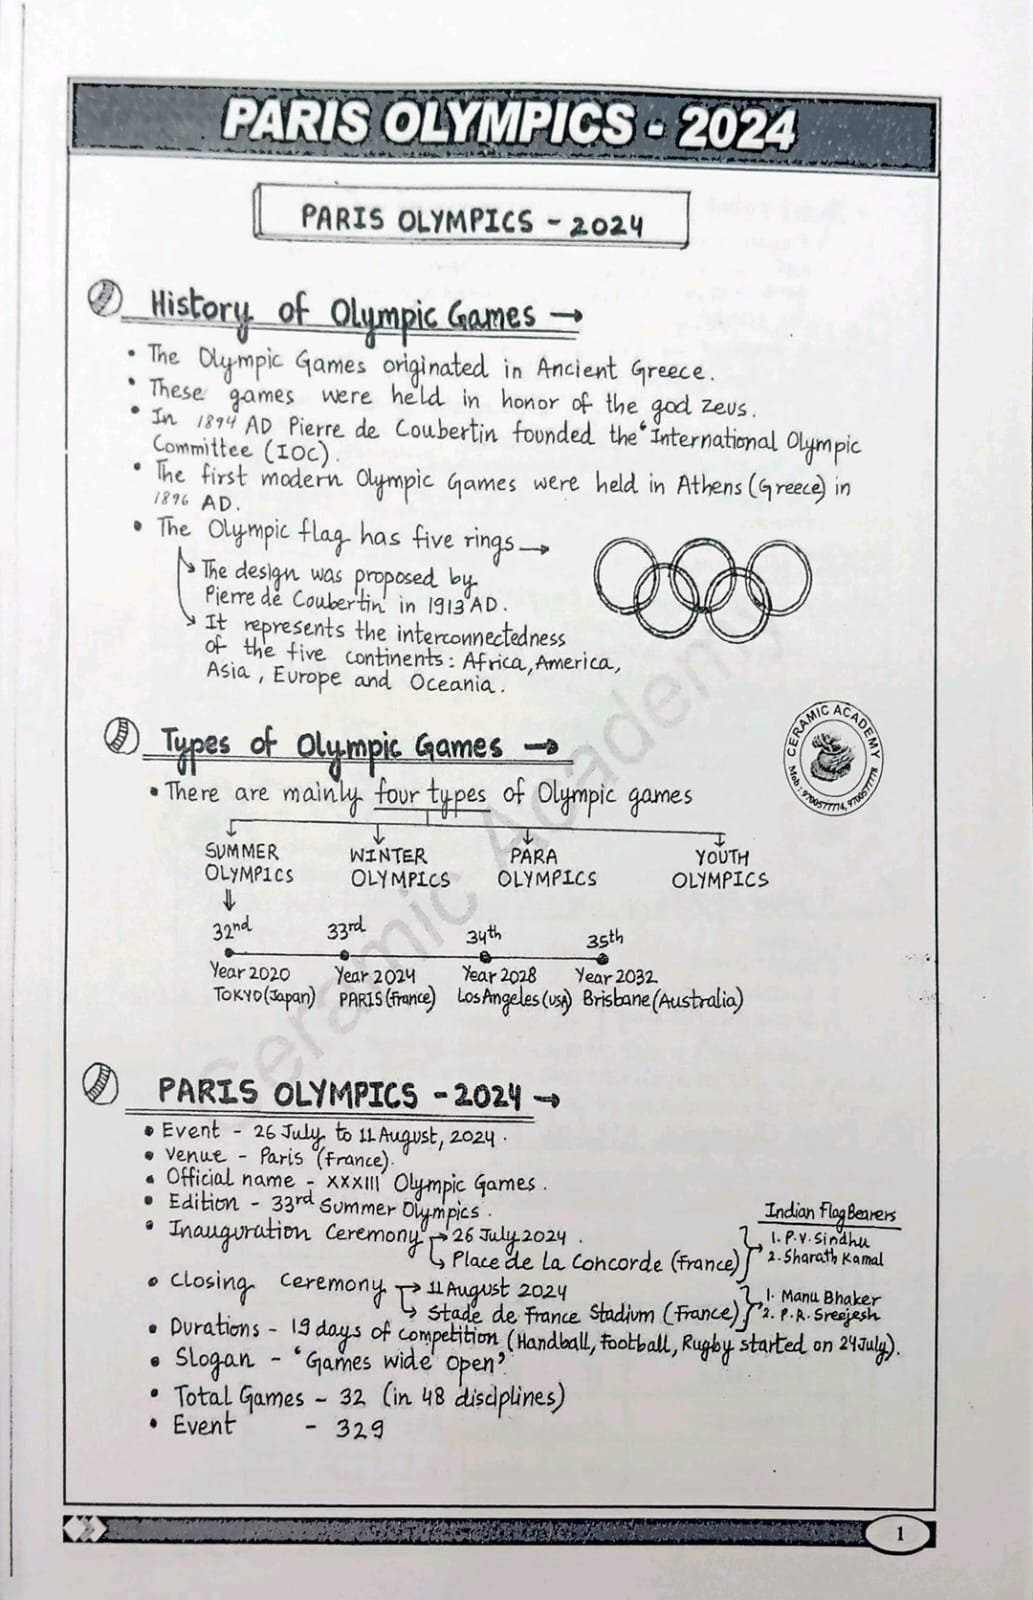 PARIS OLYMPICS - 2024
PARIS OLYMPICS - 2024
History of Olympic Games →
• The Olympic Games originated in Ancient Greece.
• These games were held in honor of the god Zeus.
• In 1894 AD Pierre de Coubertin founded the 'International Olympic
Committee (IOC).
• The first modern Olympic Games were held in Athens (Greece) in
1896 AD.
• The Olympic flag has five rings →
↘ The design was proposed by
Pierre de Coubertin in 1913 AD.
↘ It represents the interconnectedness
of the five continents : Africa, America,
Asia, Europe and Oceania.
CERAMIC ACADEMY
Mob : 9700577774, 970057778
Types of Olympic Games →
• There are mainly four types of Olympic games
SUMMER OLYMPICS
WINTER OLYMPICS
PARA OLYMPICS
YOUTH OLYMPICS
32nd 33rd 34th 35th
Year 2020 Year 2024 Year 2028 Year 2032
TOKYO (Japan) PARIS (France) Los Angeles (USA) Brisbane (Australia)
Ceramic Academy
PARIS OLYMPICS - 2024 →
• Event - 26 July to 11 August, 2024.
• Venue - Paris (France).
• Official name - XXXIII Olympic Games.
• Edition - 33rd Summer Olympics.
• Inauguration Ceremony → 26 July 2024.
↳ Place de La Concorde (France)
Indian Flag Bearers
1. P.V. Sindhu
2. Sharath Kamal
• Closing Ceremony → 11 August 2024
↳ Stade de France Stadium (France)
1. Manu Bhaker
2. P.R. Sreejesh
• Durations - 19 days of competition (Handball, Football, Rugby started on 24 July).
• Slogan - 'Games wide open'
• Total Games - 32 (in 48 disciplines)
• Event - 329
1